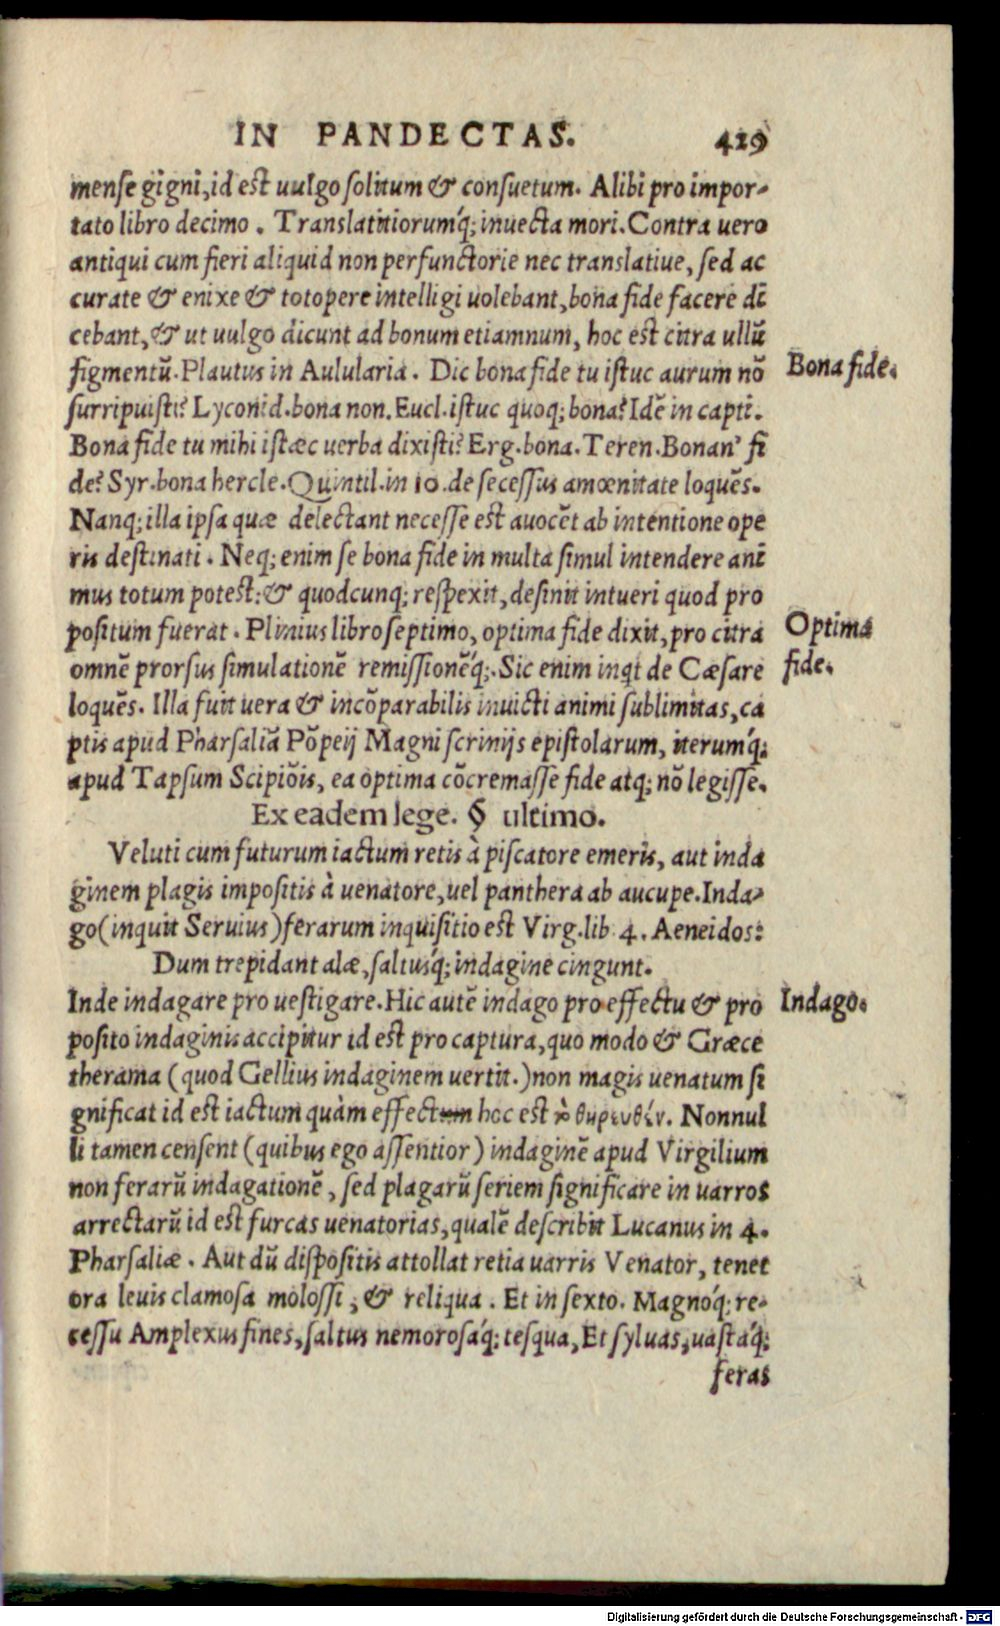 IN PANDECTAS. 429
mense gigni, id est uulgo solitum & consuetum. Alibi pro impor-
tato libro decimo. Translatitiorumq́; inuecta mori. Contra uero
antiqui cum fieri aliquid non perfunctorie nec translatiue, sed ac
curate & enixe & totopere intelligi uolebant, bona fide facere dī
cebant, & ut uulgo dicunt ad bonum etiamnum, hoc est citra ullū
figmentū. Plautus in Aulularia. Dic bona fide tu istuc aurum nō
Bona fide.
surripuisti? Lyconid. bona non. Eucl. istuc quoq; bona? Idē in capti.
Bona fide tu mihi istæc uerba dixisti? Erg. bona. Teren. Bonan' fi
de? Syr. bona hercle. Quintil. in 10. de secessus amœnitate loquēs.
Nanq; illa ipsa quæ delectant necesse est auocēt ab intentione ope
ris destinati. Neq; enim se bona fide in multa simul intendere ani
mus totum potest: & quodcunq; respexit, desinit intueri quod pro
positum fuerat. Plinius libro septimo, optima fide dixit, pro citra
Optima
omnē prorsus simulationē remissionēq́;. Sic enim inqt de Cæsare
fide.
loquēs. Illa fuit uera & incōparabilis inuicti animi sublimitas, ca
ptis apud Pharsaliā Pōpeij Magni scrinijs epistolarum, iterumq́;
apud Tapsum Scipiōis, ea optima cōcremasse fide atq; nō legisse.
Ex eadem lege. § ultimo.
Veluti cum futurum iactum retis à piscatore emeris, aut inda
ginem plagis impositis à uenatore, uel panthera ab aucupe. Inda-
go (inquit Seruius) ferarum inquisitio est Virg. lib. 4. Aeneidos:
Dum trepidant alæ, saltusq́; indagine cingunt.
Inde indagare pro uestigare. Hic autē indago pro effectu & pro
Indago.
posito indaginis accipitur id est pro captura, quo modo & Græce
therama (quod Gellius indaginem uertit.) non magis uenatum si
gnificat id est iactum quàm effectum hoc est τὸ θηρευθέν. Nonnul
li tamen censent (quibus ego assentior) indaginē apud Virgilium
non ferarū indagationē, sed plagarū seriem significare in uarros
arrectarū id est furcas uenatorias, qualē describit Lucanus in 4.
Pharsaliæ. Aut dū dispositis attollat retia uarris Venator, tenet
ora leuis clamosa molossi, & reliqua. Et in sexto. Magnoq́; re-
cessu Amplexus fines, saltus nemorosaq́; tesqua, Et syluas, uastaq́;
feras
Digitalisierung gefördert durch die Deutsche Forschungsgemeinschaft - DFG